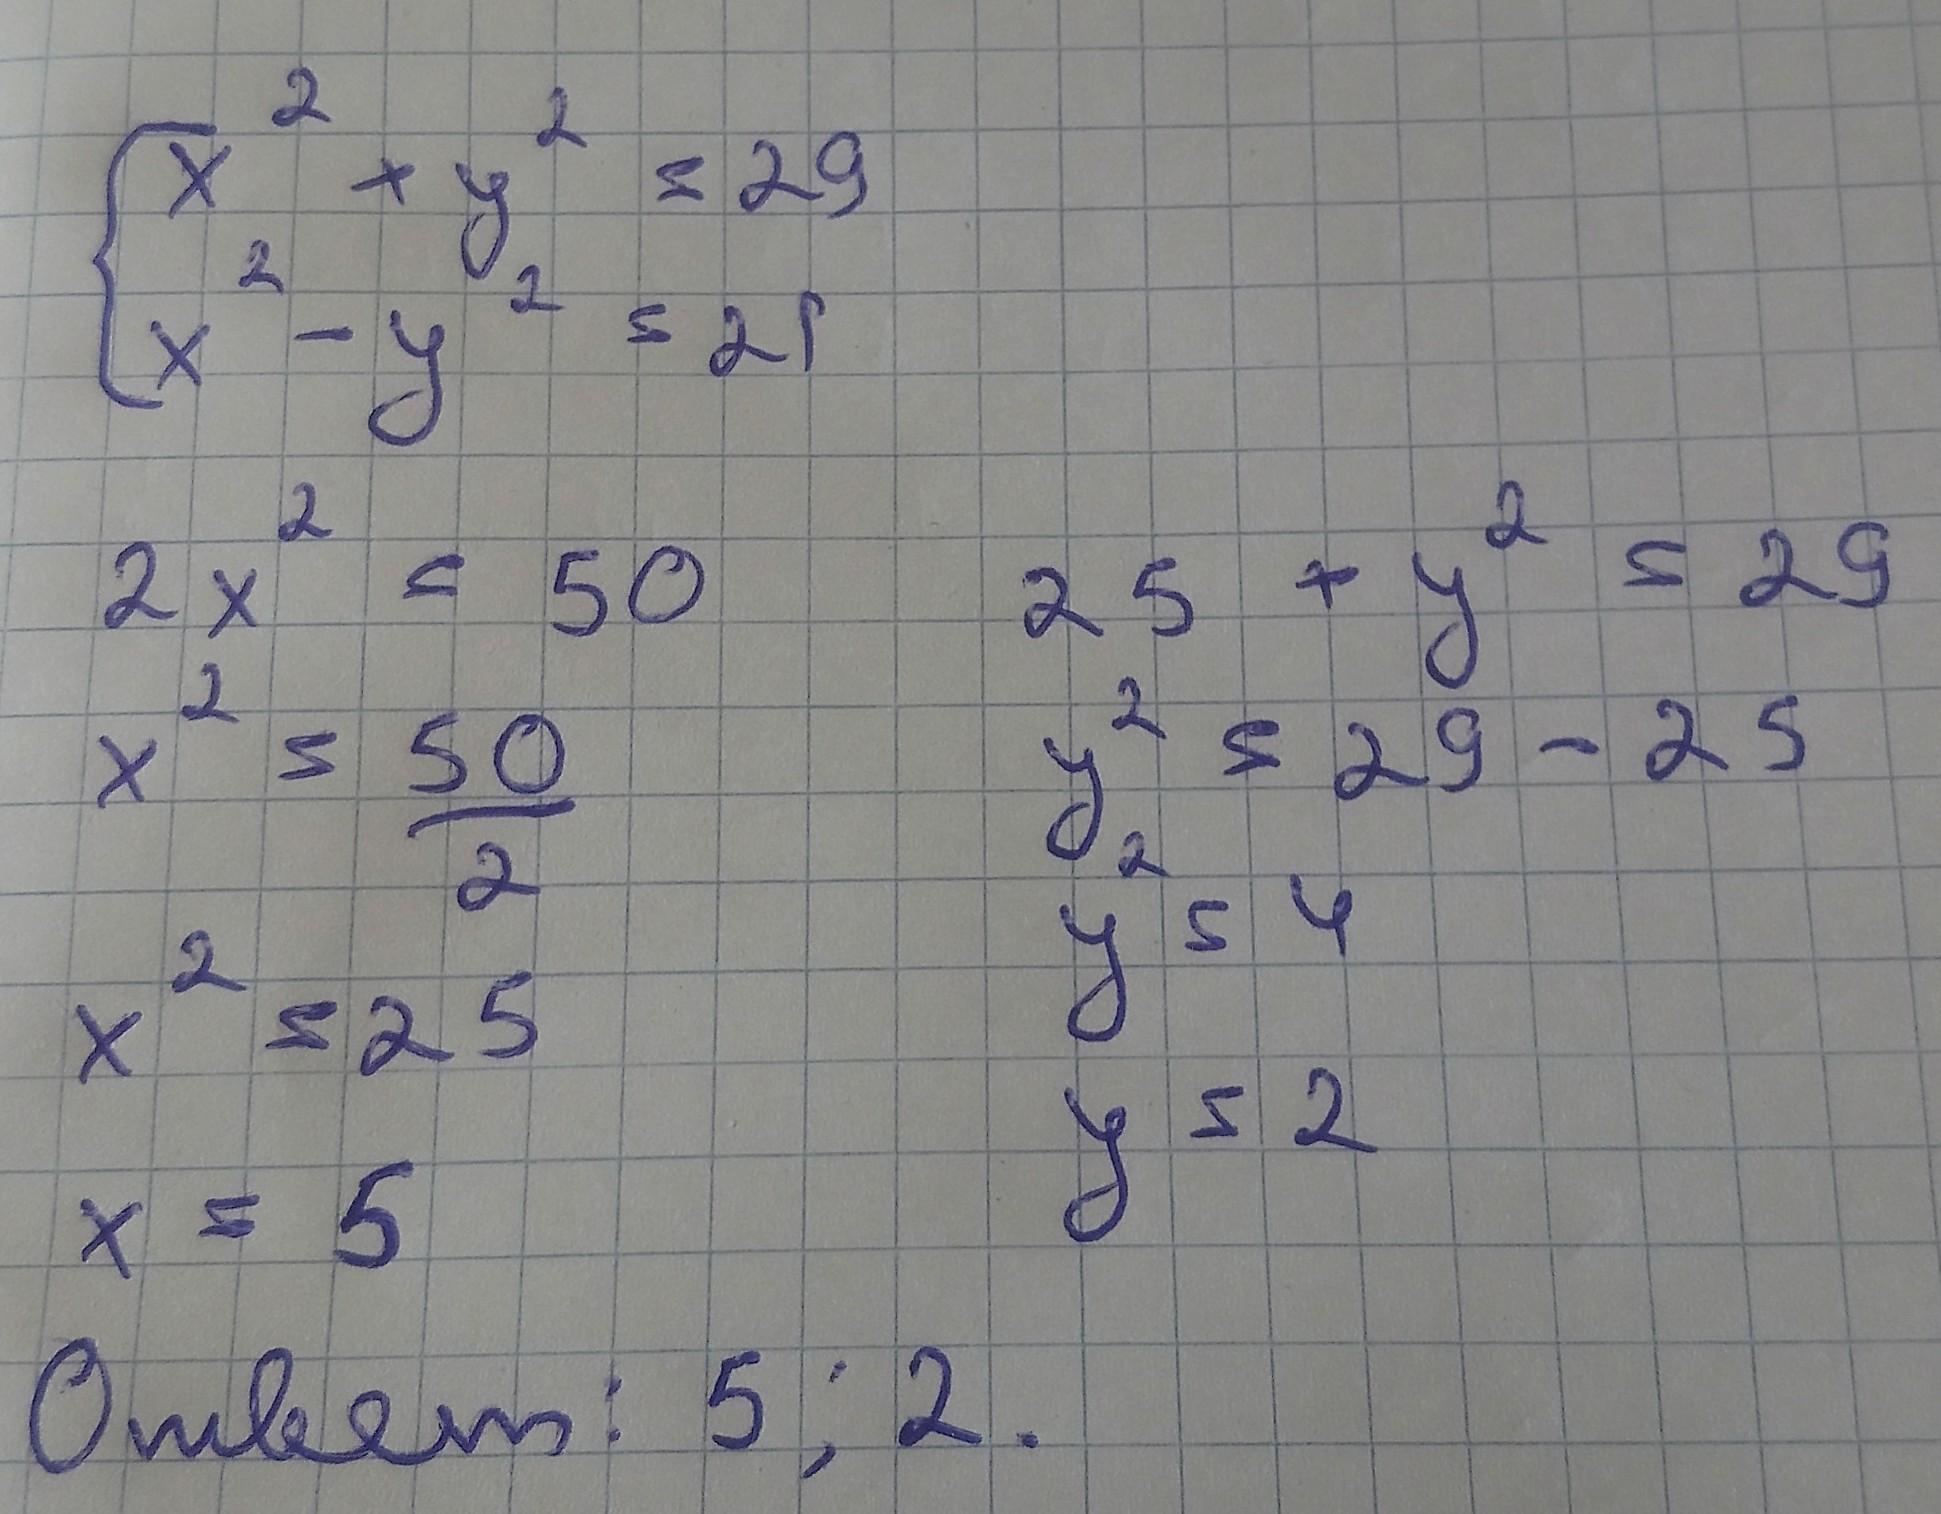 x² + y² = 29
x² - y² = 21
2x² = 50
x² = 50/2
x² = 25
x = 5
25 + y² = 29
y² = 29 - 25
y² = 4
y = 2
Ответ: 5; 2.